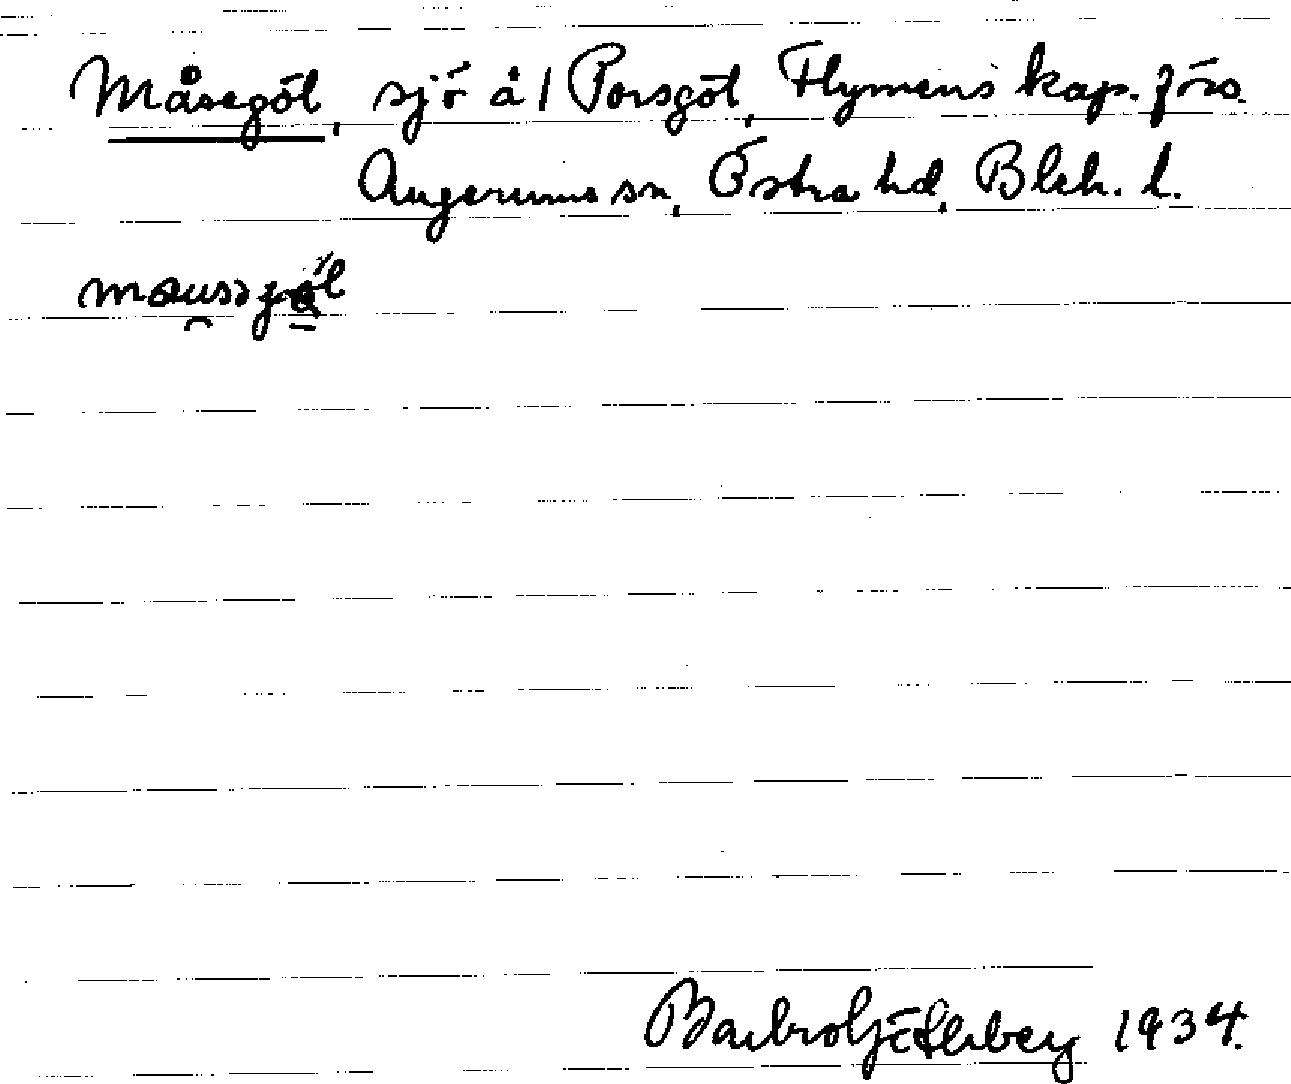 Måsegöl, sjö å 1 Porsgöl, Flymens kap. förs.
Augerums sn, Östra hd, Blek. l.
1934.